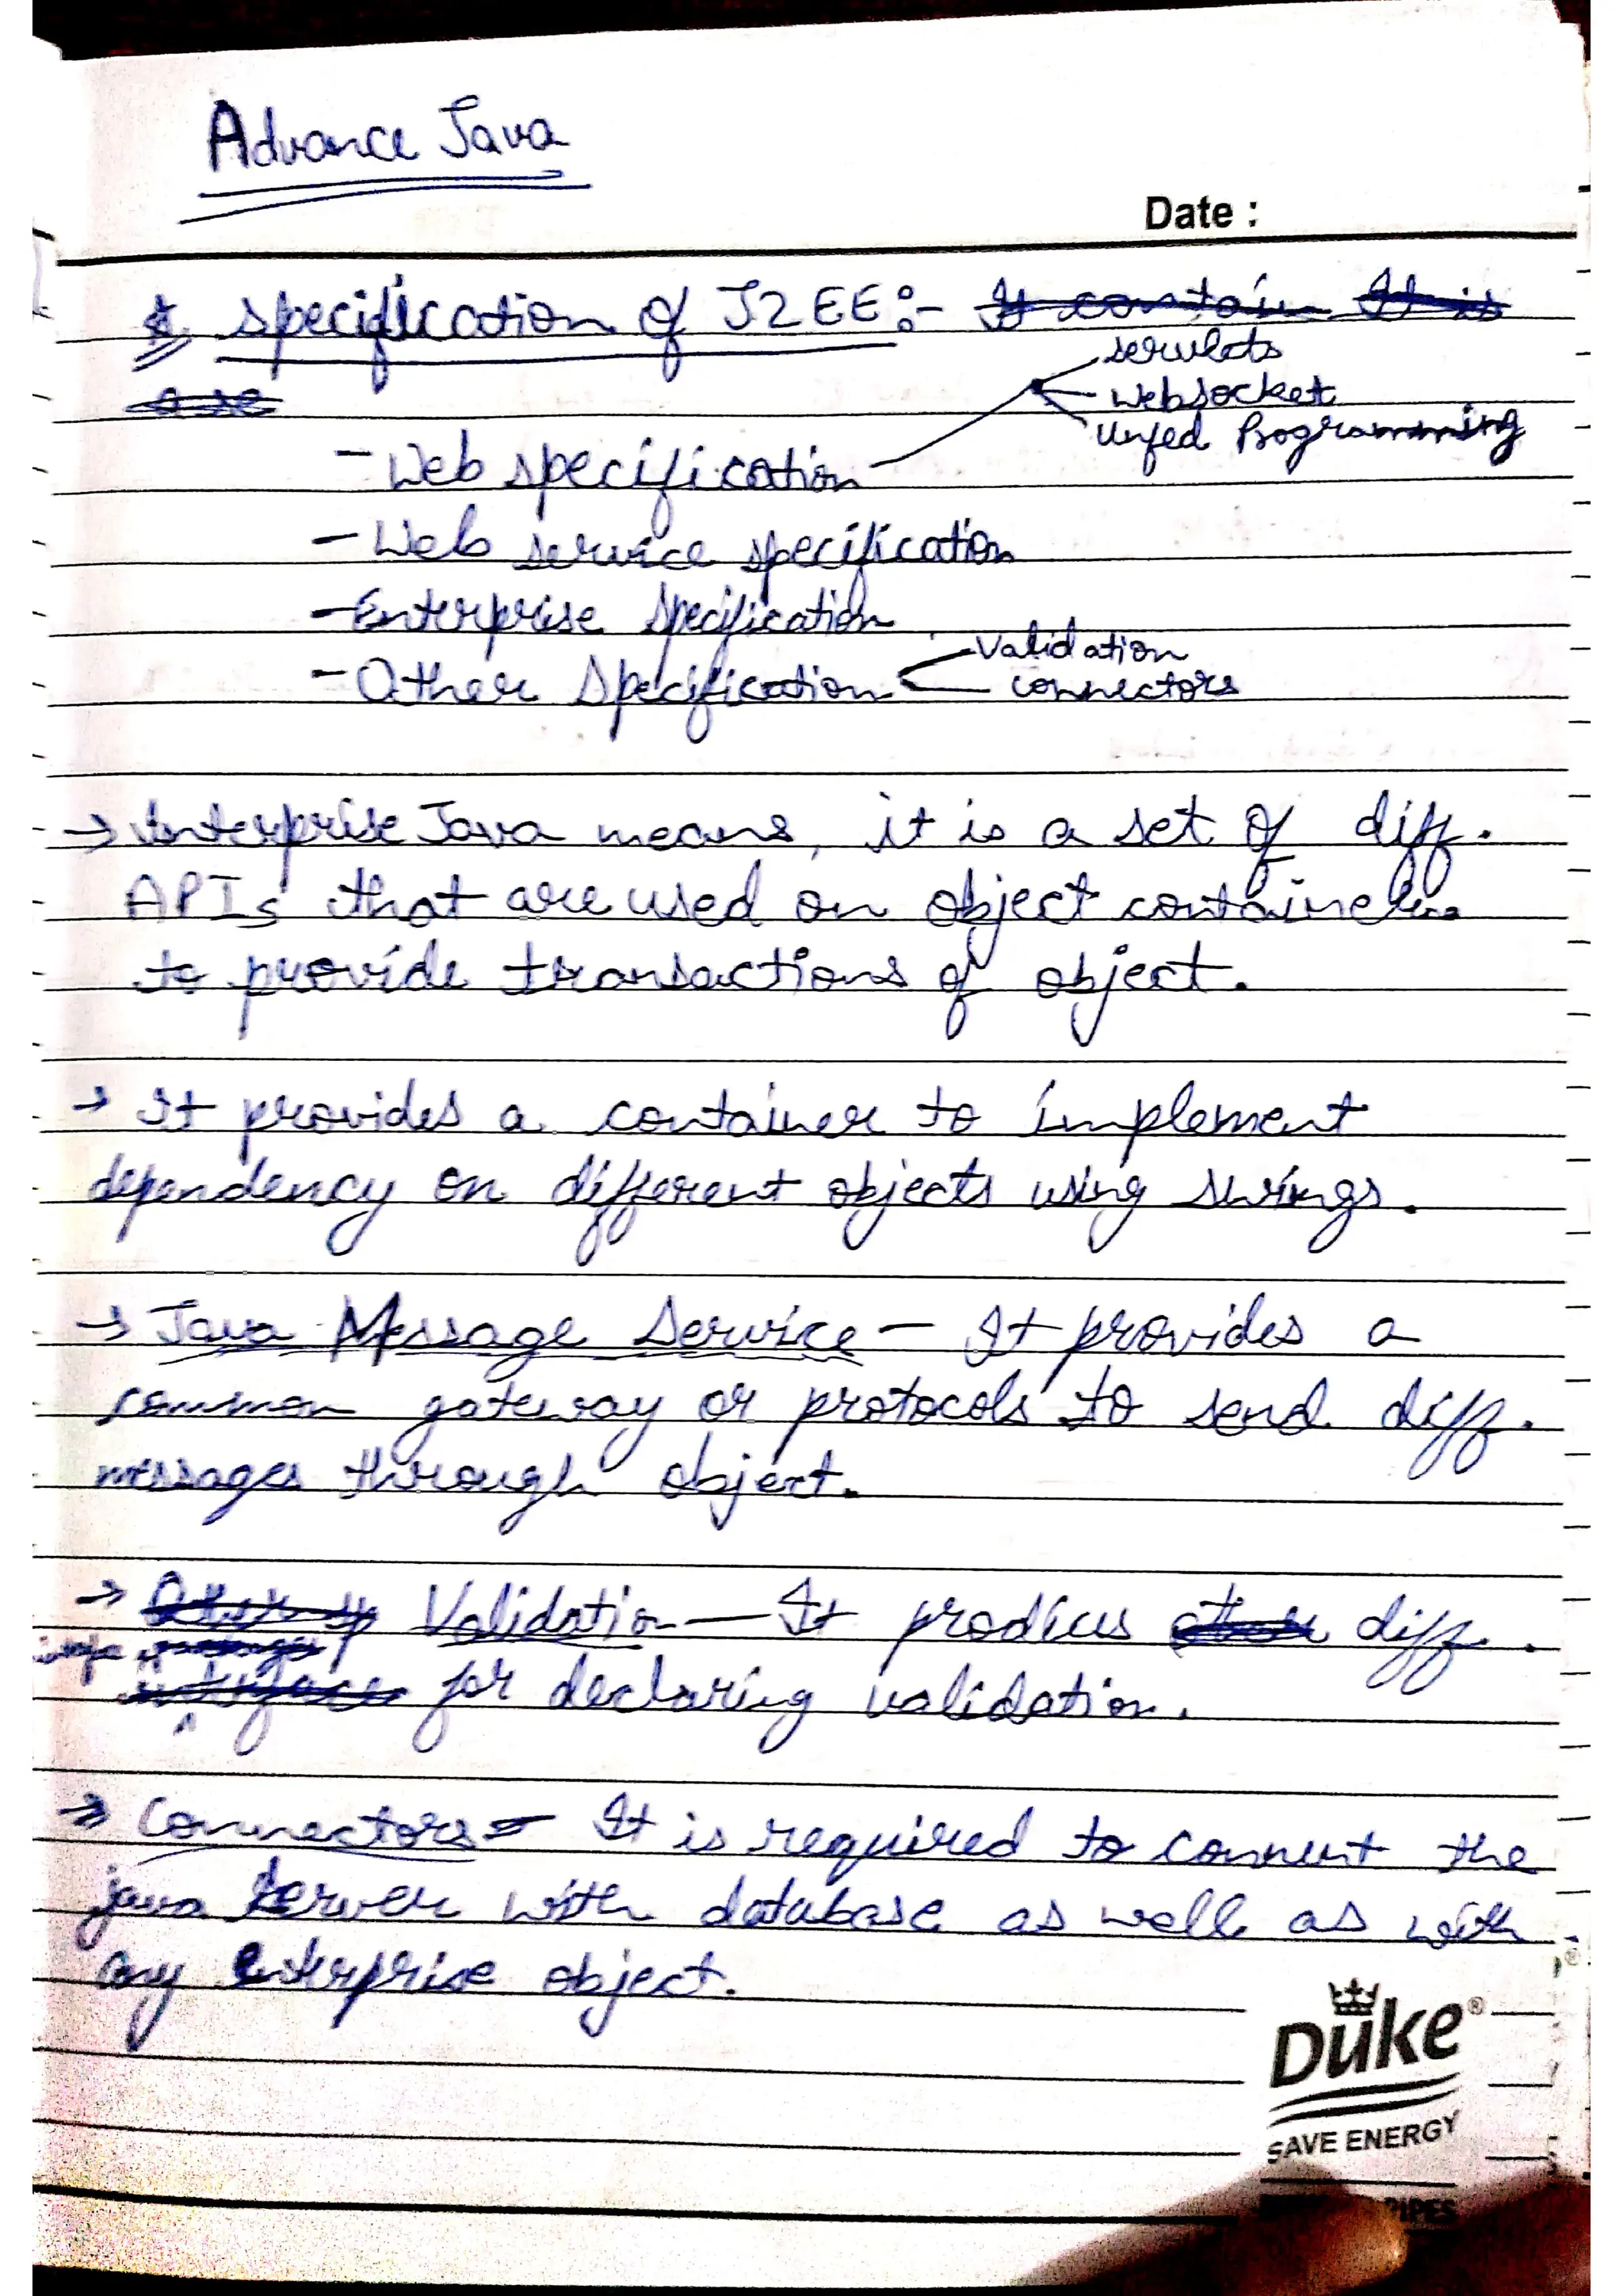 Advance Java
Date :
* specification of J2EE :- It contain It is
a se
servlets
- Websocket
Unfed Programming
- Web specification
- Web service specification
- Enterprise specification
- Validation
- Other specification - connectors
→ Interprise Java means, it is a set of diff.
APIs that are used on object containers
to provide transactions of object.
→ It provides a container to implement
dependency on different objects using swings.
→ Java Message Service - It provides a
common gateway or protocols to send diff.
messages through object.
→ Validation - It prodices diff.
interfaces for declaring validation.
→ Connectors - It is required to connect the
java server with database as well as with
any enterprise object.
Duke®
SAVE ENERGY
PIPES